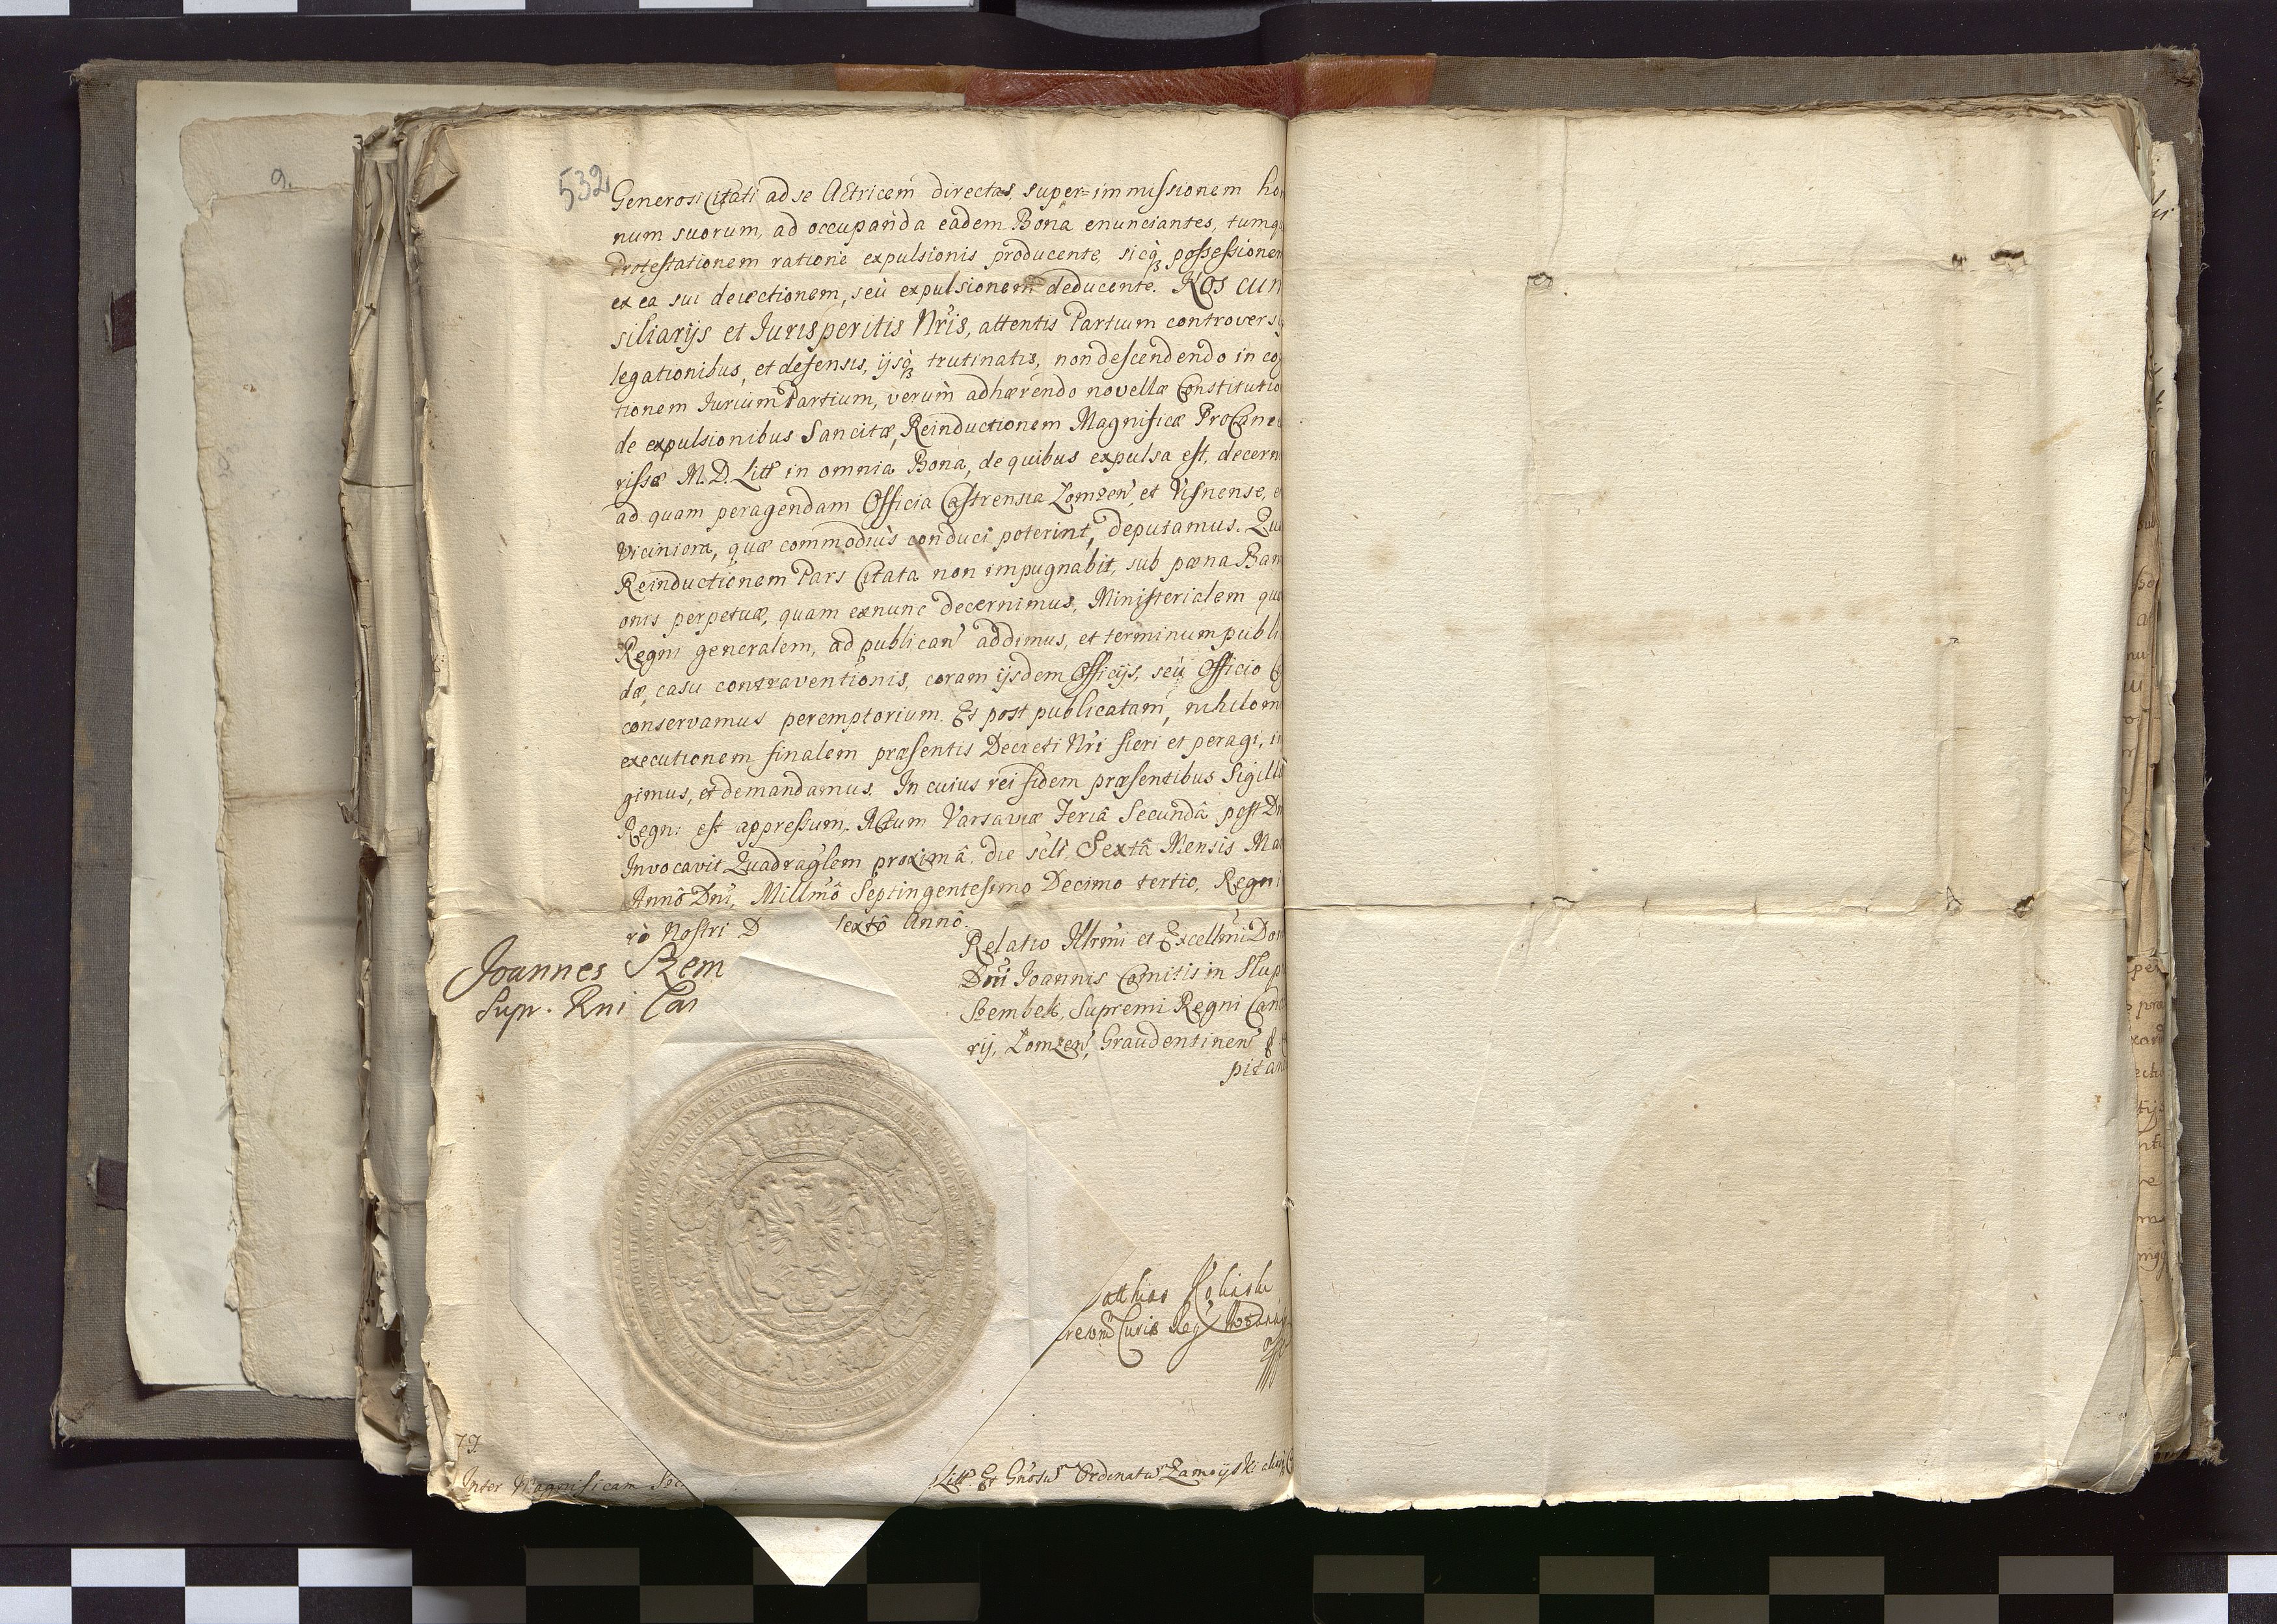 9.
532
Generosi Citati ad se Actricem directas, super=immissionem ho
num suorum, ad occupanda eadem Bona enunciantes, tumq
Protestationem ratione expulsionis producente, sicq3 possessionem
ex ea sui deiectionem, seù expulsionem deducente. Nos cun
siliarijs et Jurisperitis Nr̃is, attentis Partium controversi
legationibus, et defensis, ijsq3 trutinatis, non descendendo in co
tionem Jurium Partium, verùm adhærendo novellæ Constitutio
de expulsionibus Sancitæ, Reinductionem Magnificæ ProCance
rissæ M.D. Litt in omnia Bona, de quibus expulsa est, decern
ad quam peragendam Officia Castrensia Lomzen, et Visnense, e
Viciniora, quæ commodiùs conduci poterint, deputamus. Qu
Reinductionem Pars Citata non impugnabit, sub pæna Ban
onis perpetuæ, quam exnunc decernimus, Ministerialem que
Regni generalem, ad publican addimus, et terminum publi
dæ, casu contraventionis, coram ijsdem Officijs, seù Officio C
conservamus peremptorium. Et post publicatam, nihilom
executionem finalem præsentis Decreti Nr̃i fieri et peragi, in
gimus, et demandamus. In cuius rei fidem præsentibus Sigill
Regni est appressum. Actum Varsaviæ Feriâ Secundâ post Dn
Invocavit Quadraglem proximâ, die sclt, Sextâ Mensis Ma
Annô Dni, Millmô Septingentesimo Decimo tertio, Regni
rò Nostri D sextô Annô.
Joannes Szem
Supr. Rni Can
Relatio Illrmi et Excellmi Dom
Dni Joannis Comitis in Slup
Szembek, Supremi Regni Can
rij, Lomzen, Graudentinen
pitan
atthias
Curiæ Reg
Inter Magnificam
Litt. Et Gnosum Ordinatum Zamoyski